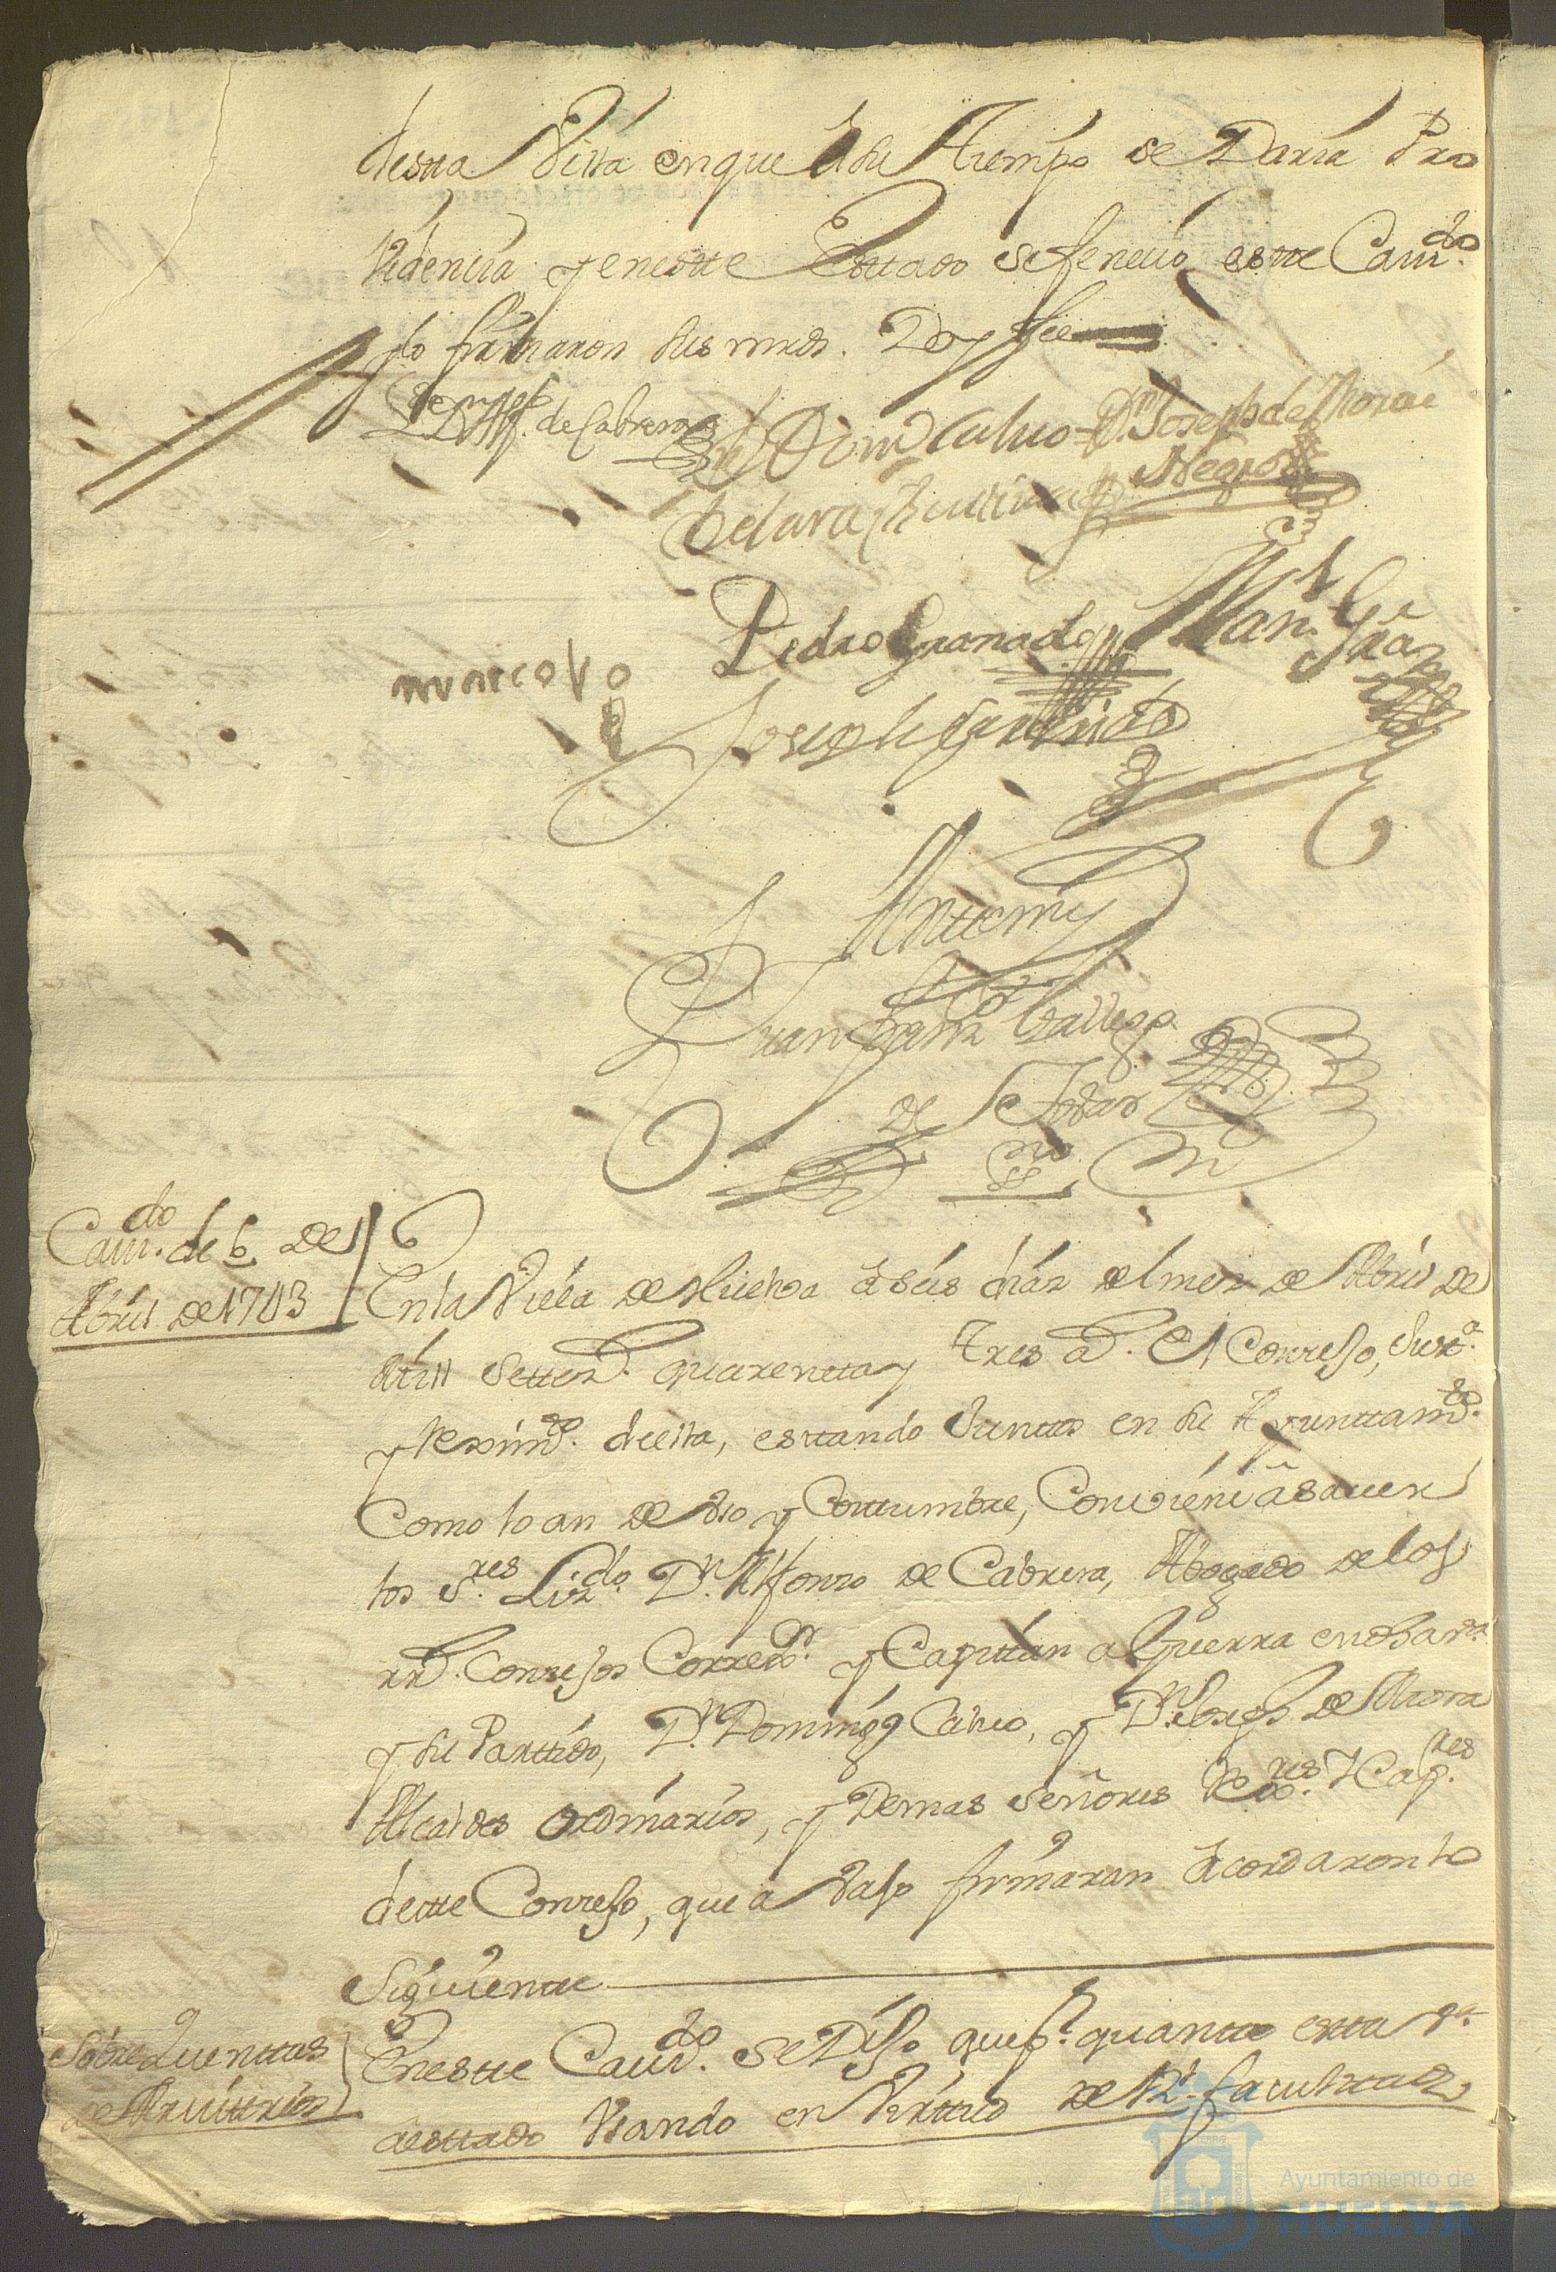 desta Villa en que a su tiempo se Daria Pro
Videncia y en estte Esttado se fenecio estte Cauiᵈᵒ.
y lo firmaron sus mrds. Doy fee
Lizᵈᵒ Dⁿ Alf. de Cabrera
Domº Caluo
Dⁿ Joseph de Mora
Negro
de lara
Pedro Granado
Manˡ
marcos
Joseph
Antte my
Juan Gallego
de Tobar
Cauiᵈᵒ. de 6 de
Abril de 1743
En la Villa de Huelva a seis dias del mes de Abril de
Mill settezˢ. quarentta y tres aˢ. El Conzejo, Justᵃ.
y Reximᵗᵒ. de ella, esttando Juntos en su Ayunttamᵗᵒ.
Como lo an de Vso y Costtumbre, Conviene a sauer
los Sʳᵉˢ. Lizᵈᵒ. Dⁿ. Alfonso de Cabrera, Abogado de los
RRˢ. Consejos Correxᵒʳ. y Capittan a Guerra en dha Vᵃ.
y su Parttido, Dⁿ Domingº Caluo, y Dⁿ Joseph de Mora
Alcaldes ordinarios, y Demas Señores Rexʳᵉˢ. y Capʳᵉˢ
de estte Conzejo, que a vajo firmaran Acordaron lo
Siguientte
Sobre Quenttas
de Arvittrios
En estte Cauiᵈᵒ. se Dijo que pʳ. quantto estta Vᵃ.
a esttado Vsando en Virttud de Rˡ. facultad
Ayuntamiento de
HUELVA